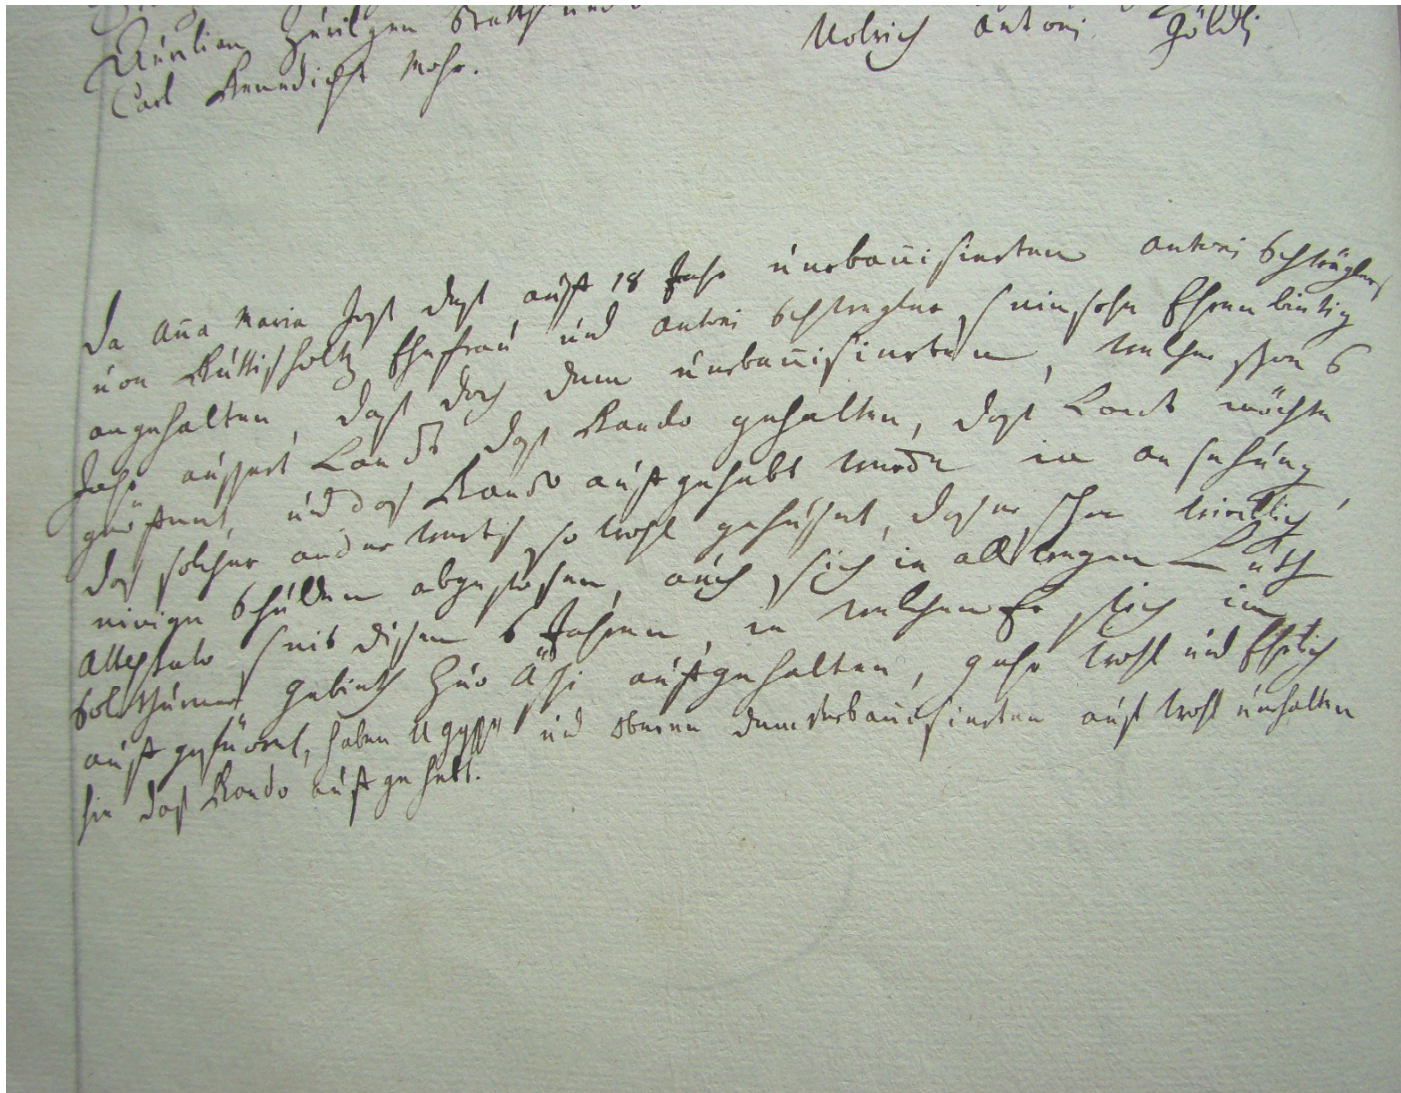 Aurelian Zurilgen Statth und
Ulrich Antoni Göldli
Carl Benedicht Mohr.
Da Aña Maria deß auff 18 Jahr verbañisierten Antoni
von Buttisholtz Ehefrau und Antoni sein sohn Ehrenbietig
angehalten, daß doch dem verbañisierten, welcher schon 6
Jahr aussert Lands daß Bando gehalten, daß Land möchte
geöffnet, und daß Bando auffgehebt werde in ansehung
daß solcher so wohl gehauset, daß er schon würcklich
einige Schulden abgestossen, auch sich in allwegen Luth
Attestato seit disen 6 Jahren, in welchen Er sich im
Solothurner gebieth zuo Äschi auffgehalten, gahr wohl und Ehrlich
auffgefüört, haben UGHH und Oberen dem verbañisierten auff wohlverhalten
hin daß Bando auffgehebt.